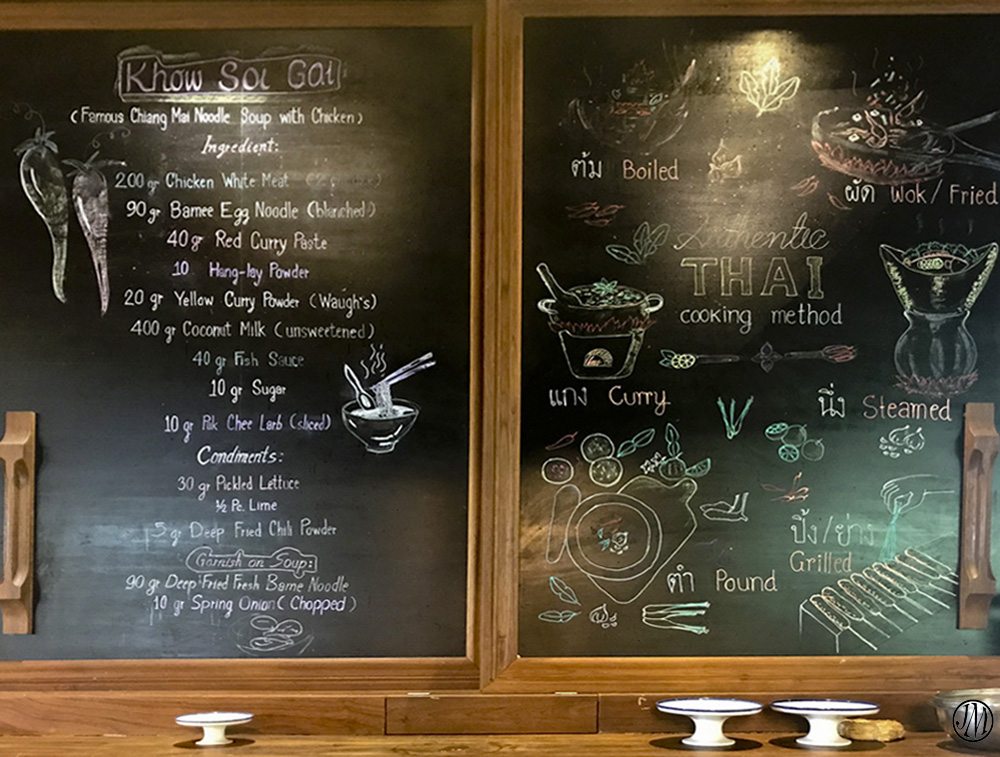 Khow Soi Gai
(Famous Chiang Mai Noodle Soup with Chicken)
Ingredient:
200 gr Chicken White Meat
90 gr Bamee Egg Noodle (blanched)
40 gr Red Curry Paste
10 Hang-lay Powder
20 gr Yellow Curry Powder (Waugh's)
400 gr Coconut Milk (unsweetened)
40 gr Fish Sauce
10 gr Sugar
10 gr Pak Chee Larb (sliced)
Condiments:
30 gr Pickled Lettuce
½ Pc. Lime
5 gr Deep Fried Chili Powder
Garnish on Soup:
90 gr Deep Fried Fresh Bame Noodle
10 gr Spring Onion (Chopped)
ต้ม Boiled
ผัด Wok/Fried
Authentic
THAI
cooking method
แกง Curry
นึ่ง Steamed
ปิ้ง/ย่าง
Grilled
ตำ Pound
JM